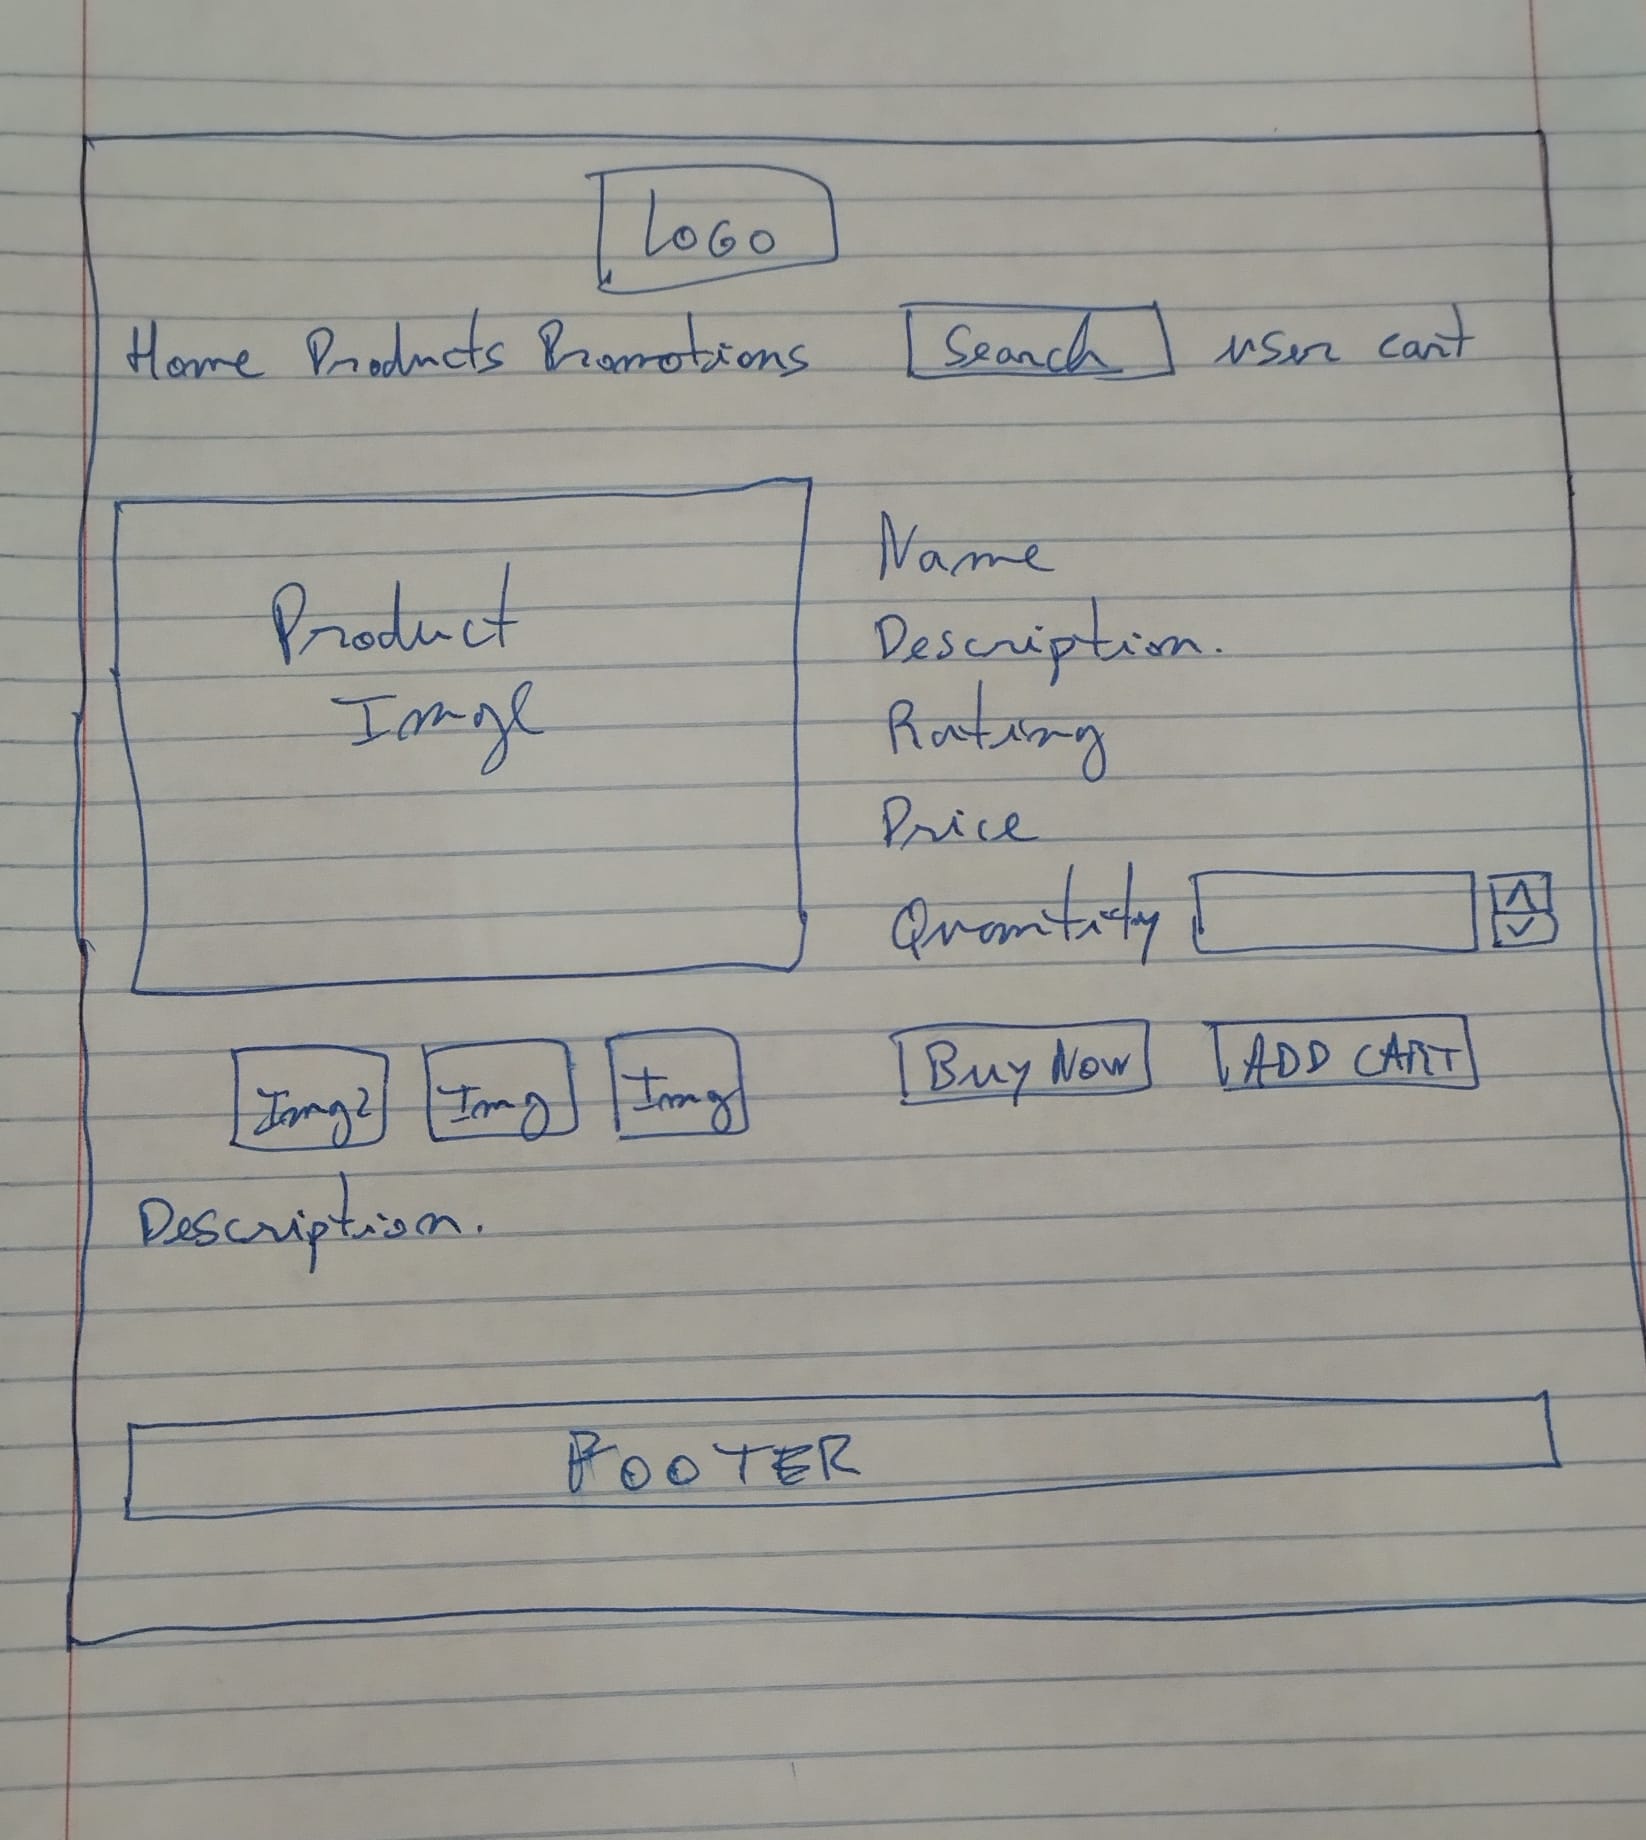 LOGO
Home Products Promotions Search user cart
Product
Image
Name
Description.
Rating
Price
Quantity
Img2 Img Img
Buy Now ADD CART
Description.
FOOTER